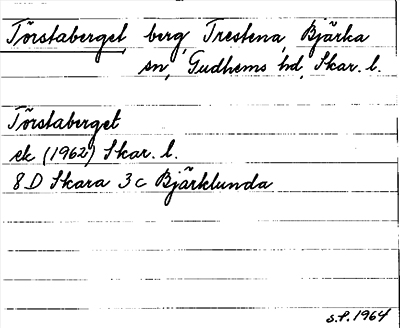 Törstaberget, berg, Trestena, Bjärka
sn, Gudhems hd, Skar. l.
Törstaberget
ek (1962) Skar. l.
8D Skara 3c Bjärklunda
S.F. 1964